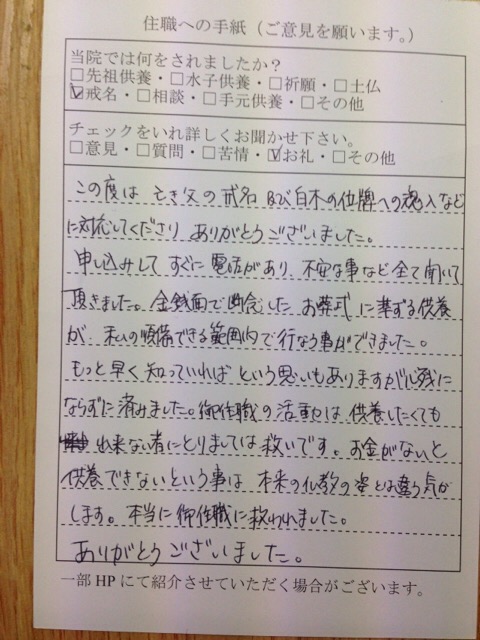 住職への手紙（ご意見を願います。）
当院では何をされましたか？
□先祖供養・□水子供養・□祈願・□土仏
☑戒名・□相談・□手元供養・□その他
チェックをいれ詳しくお聞かせ下さい。
□意見・□質問・□苦情・☑お礼・□その他
この度は 亡き父の戒名 及び白木の位牌への魂入など
に対応してくださり ありがとうございました。
申し込みして すぐに 電話があり、不安な事など全て聞いて
頂きました。金銭面で断念した お葬式 に準ずる供養
が、私の準備できる範囲内で行なう事ができました。
もっと早く知っていれば という思いもありますが心残に
ならずに済みました。御住職の活動は 供養したくても
出来ない者にとりましては救いです。お金がないと
供養できないという事は 本来の仏教の姿とは違う気が
します。本当に御住職に救われました。
ありがとうございました。
一部 HP にて紹介させていただく場合がございます。